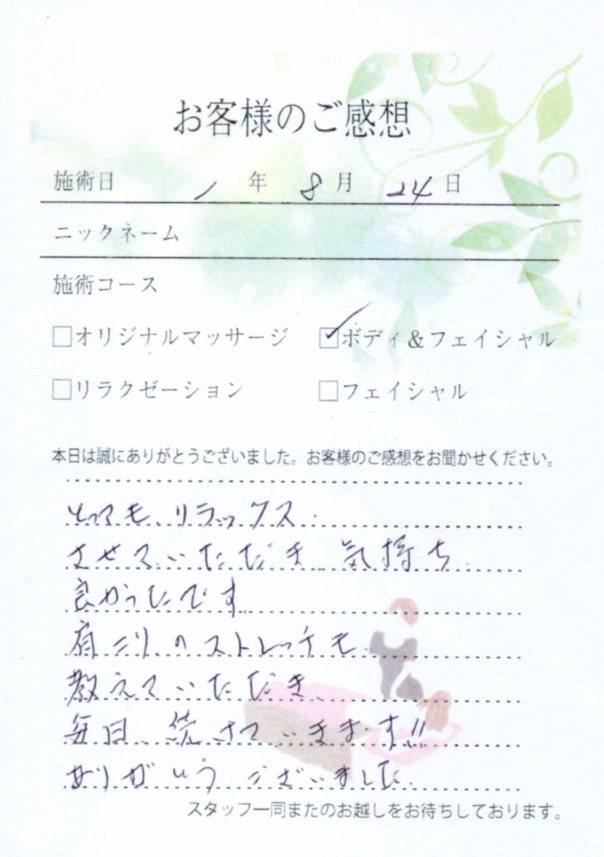 お客様のご感想
施術日 1 年 8 月 24 日
ニックネーム
施術コース
□オリジナルマッサージ ☑ボディ&フェイシャル
□リラクゼーション □フェイシャル
本日は誠にありがとうございました。お客様のご感想をお聞かせください。
とってもリラックス
させていただき 気持ち
良かったです
肩こりのストレッチも
教えていただき
毎日、続けていきます!!
ありがとうございました
スタッフ一同またのお越しをお待ちしております。